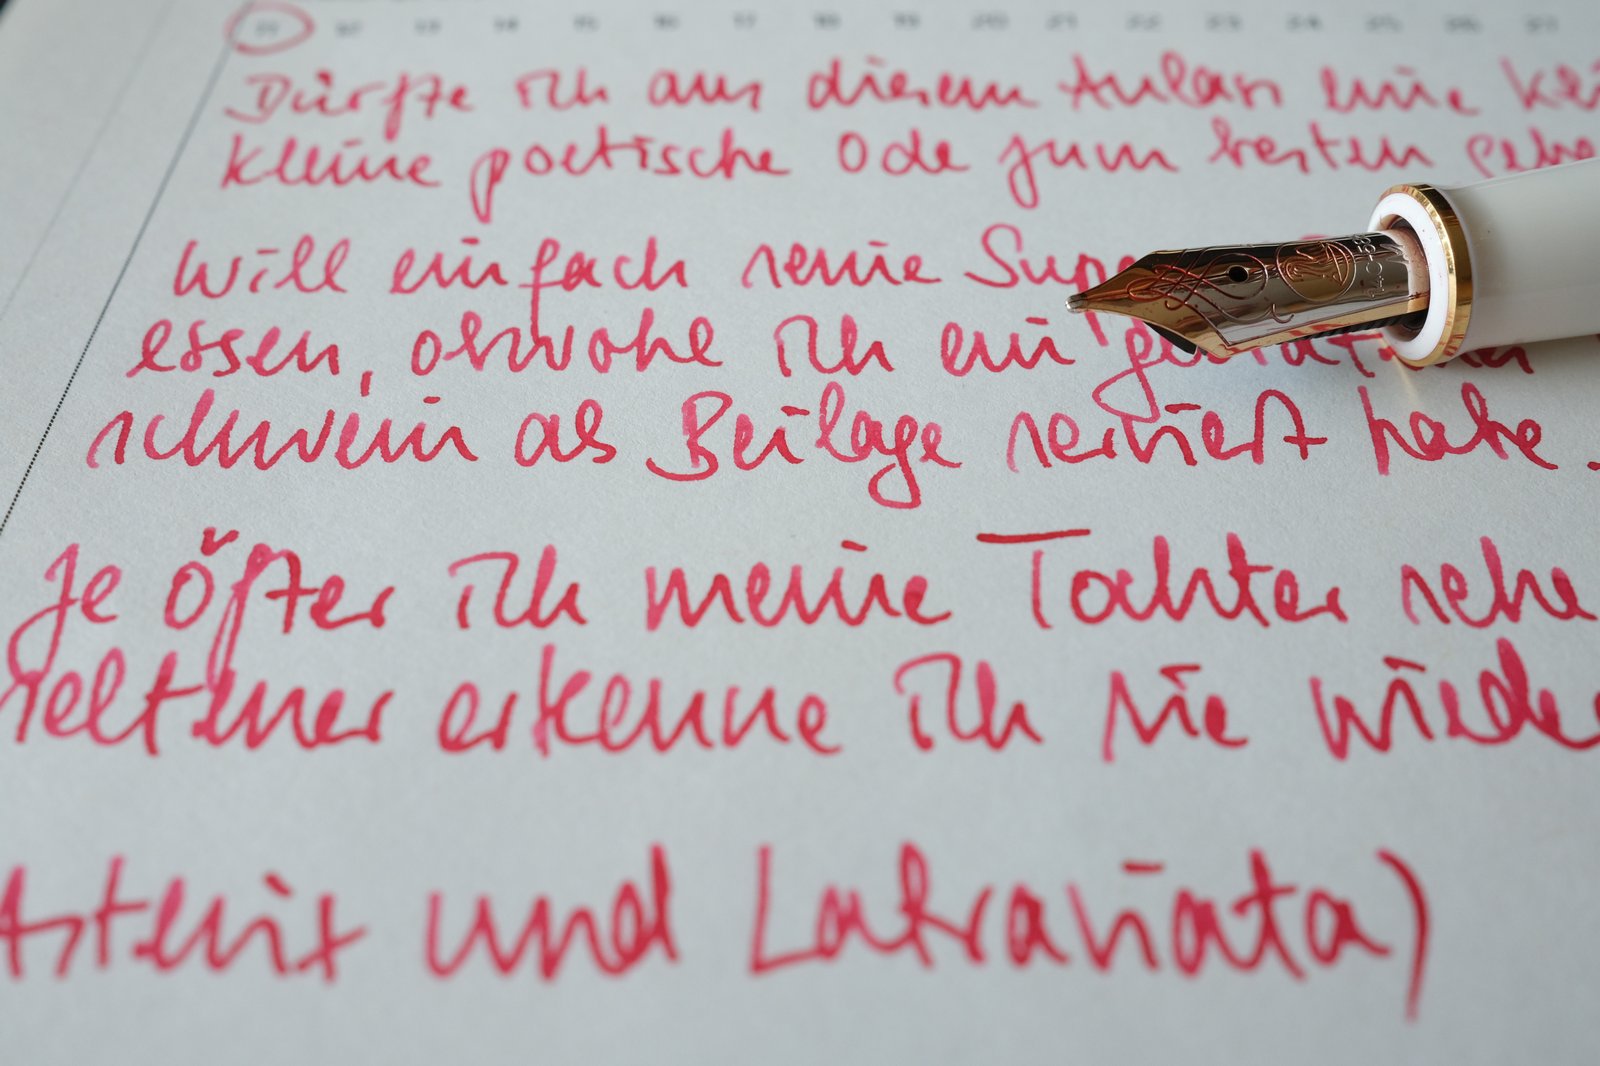 11 12 13 14 15 16 17 18 19 20 21 22 23 24 25 26 27
Dürfte ich aus diesem Anlass eine
kleine poetische Ode zum besten gebe
Will einfach seine Sup
essen, obwohl ich ein
schwein als Beilage serviert habe.
Je öfter ich meine Tochter sehe
seltener erkenne ich sie wiede
Asterix und Latraviata)